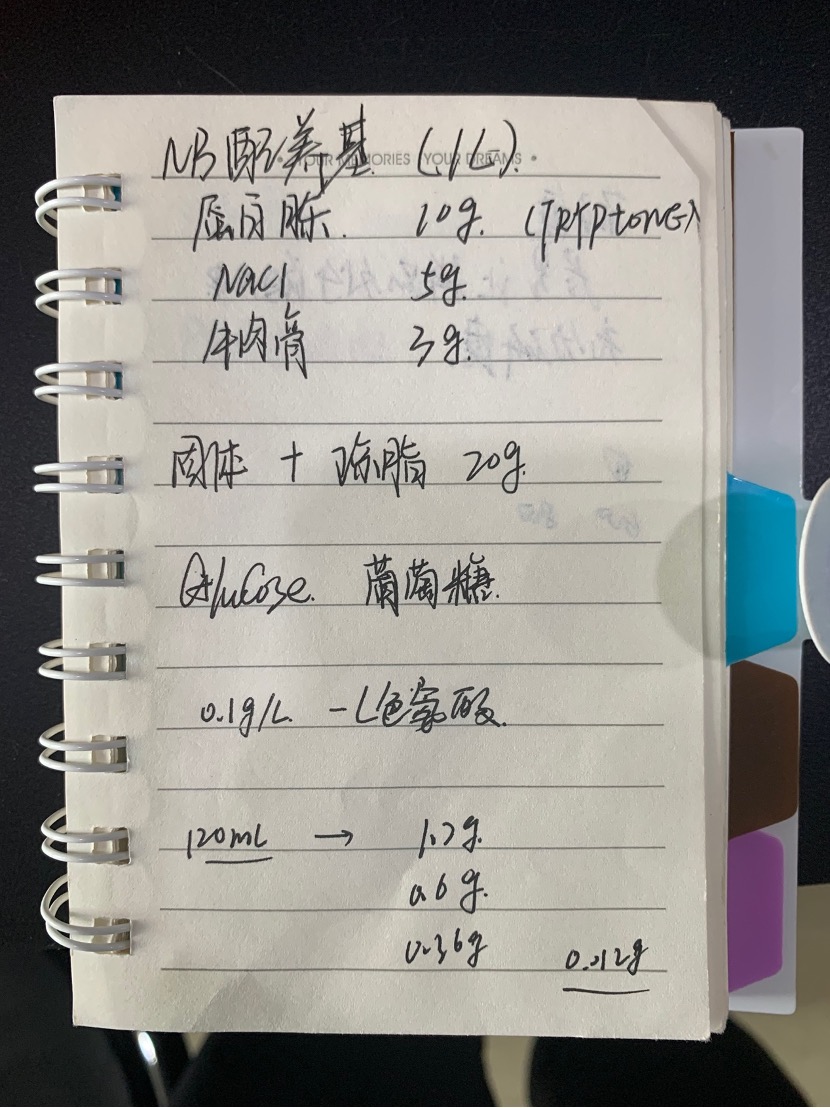 NB配养基 (1L).
• YOUR MEMORIES YOUR DREAMS •
蛋白胨. 10g. (TRYPtONE)
NaCl 5g.
牛肉膏 3g.
固体 + 琼脂 20g.
Glucose. 葡萄糖.
0.1g/L. -L色氨酸.
120mL → 1.2g.
0.6g.
0.36g
0.012g